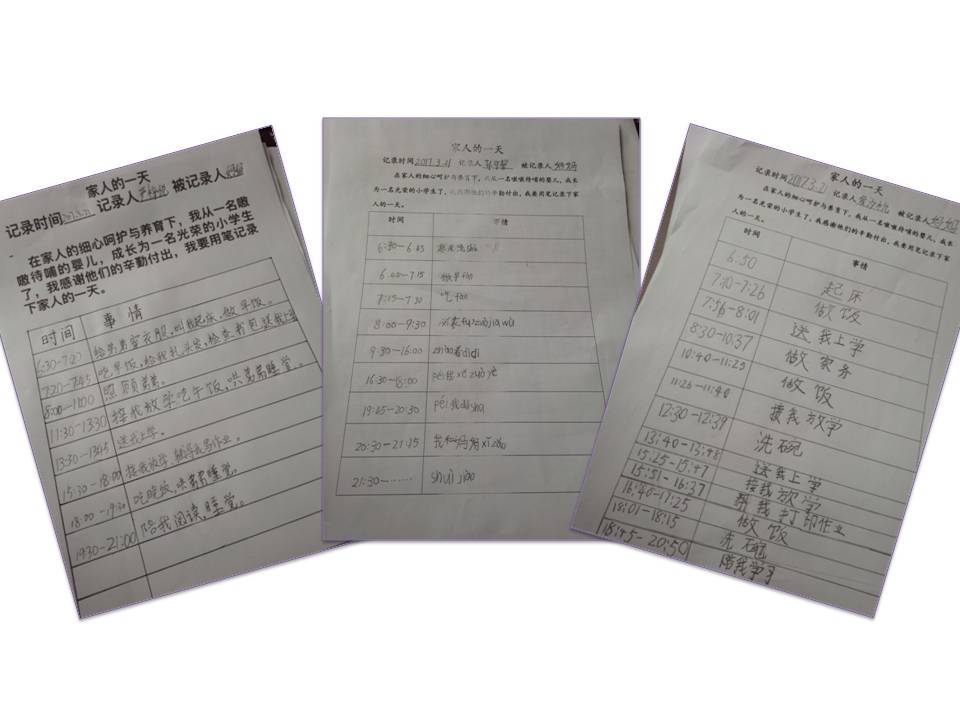 家人的一天
记录时间2017.3.21 记录人 被记录人妈妈
在家人的细心呵护与养育下，我从一名嗷
嗷待哺的婴儿，成长为一名光荣的小学生
了，我感谢他们的辛勤付出，我要用笔记录
下家人的一天。
时间 事情
6:30-7:20 给弟弟穿衣服，叫我起床，做早饭。
7:20-7:45 吃早饭，给我扎头发，检查书包送我上学
8:00-11:00 照顾弟弟。
11:30-13:30 接我放学吃午饭，哄弟弟睡觉。
13:30-13:45 送我上学。
15:30-18:00 接我放学，辅导我写作业。
18:00-19:30 吃晚饭，哄弟弟睡觉。
19:30-21:00 陪我阅读，睡觉。
家人的一天
记录时间2017.3.21 记录人 被记录人妈妈
在家人的细心呵护与养育下，我从一名嗷嗷待哺的婴儿，成长
为一名光荣的小学生了，我感谢他们的辛勤付出，我要用笔记录下家
人的一天。
时间 事情
6:30-6:45 起床洗脸
6:00-7:15 做早fan
7:15-7:30 吃fan
8:00-9:30 jiawu
9:30-16:00 zhao看didi
16:30-18:00 陪我xiě zuò yè
19:25-20:30 péi我
20:30-21:15 我和妈妈xǐ zǎo
21:30-…… shuì jiào
家人的一天
记录时间2017.3.21 记录人 被记录人妈妈
在家人的细心呵护与养育下，我从一名嗷嗷待哺的婴儿，成长
为一名光荣的小学生了，我感谢他们的辛勤付出，我要用笔记录下家
人的一天。
时间 事情
6:50 起床
7:10-7:26 做饭
7:56-8:01 送我上学
8:30-10:37 做家务
10:40-11:25 做饭
11:26-11:40 接我放学
12:30-12:39 洗碗
13:40-13:48 送我上学
15:25-15:47 接我放学
15:51-16:37 帮我打印作业
16:40-17:25 做饭
18:01-18:15 洗碗
18:45-20:50 陪我学习